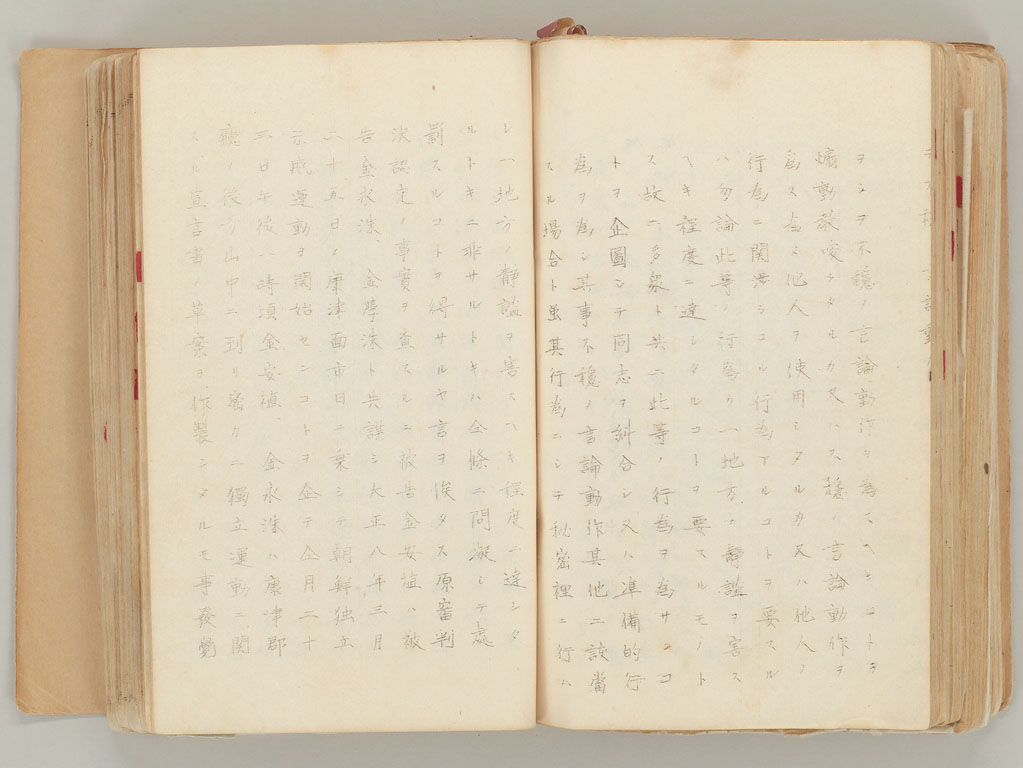 ヲシテ不穏ノ言論動作ヲ為
煽動教唆シタルカ又ハ不穏ノ言論動作ヲ
為ス為メ他人ヲ使用シタルカ又ハ他人ノ
行為ニ関渉シタル行為アルコトヲ要スル
ハ勿論此等ノ行為カ一地方ノ静謐ヲ害ス
ヘキ程度ニ達シタルコトヲ要スルモノト
ス故ニ多衆ト共ニ此等ノ行為ヲ為サンコ
トヲ企圖シテ同志ヲ糾合シ又ハ準備的行
為ヲ為シ其事不穏ノ言論動作其他ニ該當
スル場合ト虽其行為ニシテ秘密裡ニ行ハ
レ一地方ノ静謐ヲ害スヘキ程度ニ達シタ
ルトキニ非サルトキハ仝條ニ問擬シテ處
罰スルコトヲ得サルヤ言ヲ俟タス原審判
決認定ノ事實ヲ査スルニ被告金安植ハ被
告金永洙、金學洙ト共謀シ大正八年三月
二十五日ノ康津面市日ニ乗シテ朝鮮独立
示威運動ヲ開始センコトヲ企テ仝月二十
二日午後八時頃金安植、金永洙ハ康津郡
廳ノ後方山中ニ到リ密カニ獨立運動ニ関
スル宣言書ノ草案ヲ作製シタルモ事發覺